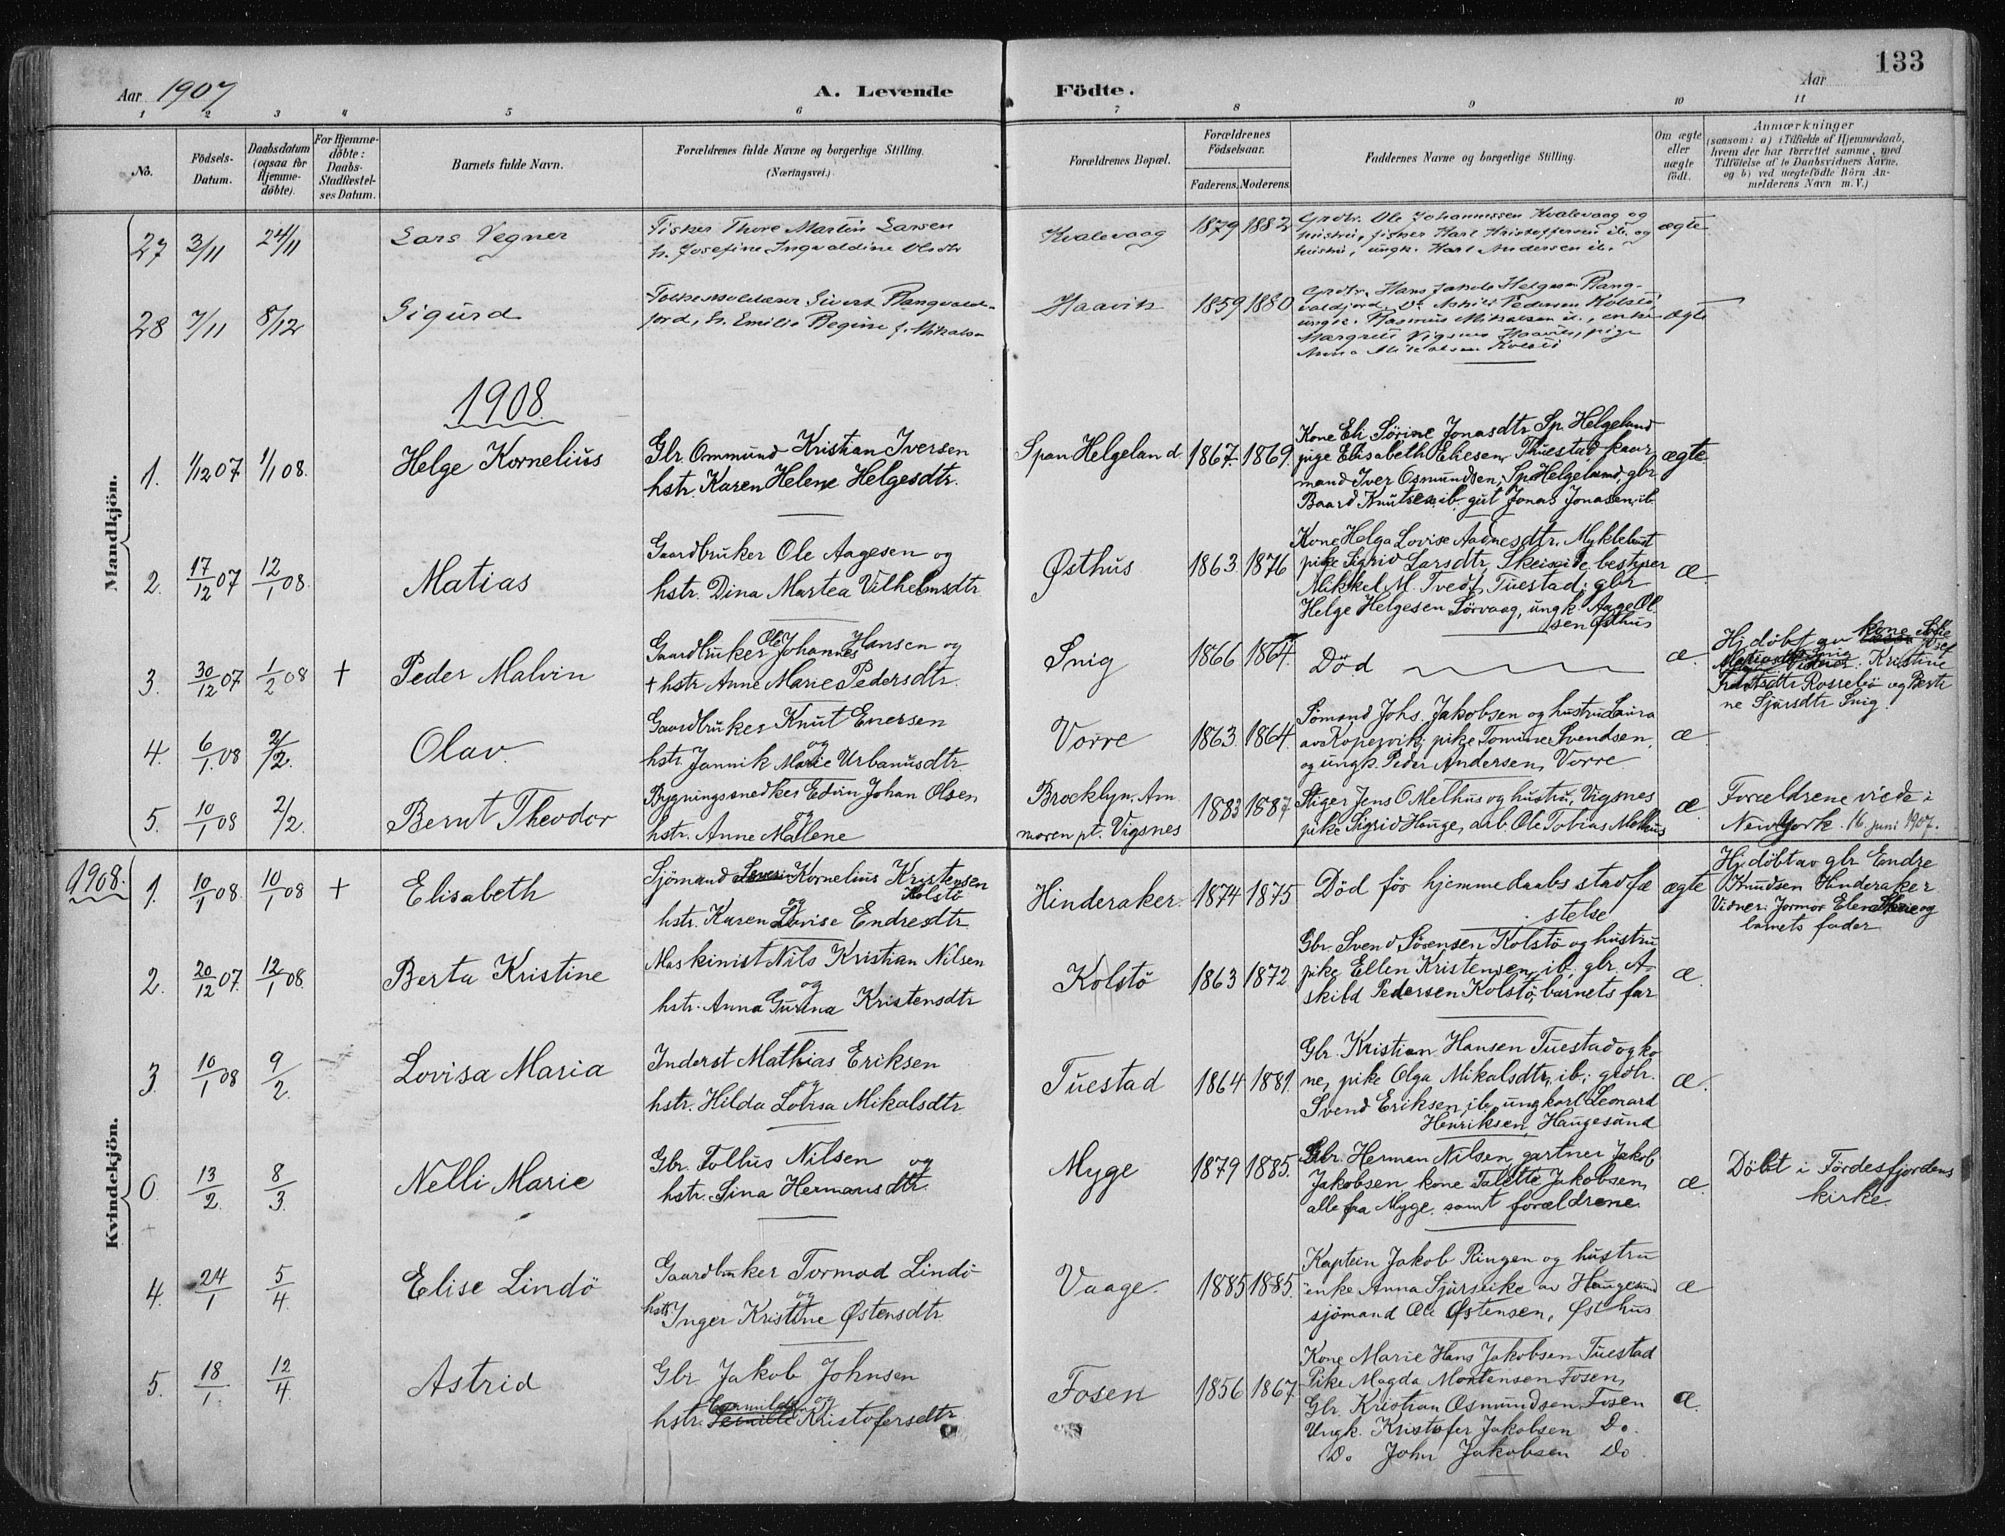 133
Aar 1907
A. Levende Födte.
Aar
1 2 3 4 5 6 7 8 9 10 11
No.
Födsels-Datum.
Daabsdatum (ogsaa for Hjemme-döbte).
For Hjemme-döbte: Daabs-Stadfæstel-ses Datum.
Barnets fulde Navn.
Forældrenes fulde Navne og borgerlige Stilling. (Næringsvei.)
Forældrenes Bopæl.
Forældrenes Födselsaar.
Faderens. Moderens.
Faddernes Navne og borgerlige Stilling.
Om ægte eller uægte födt.
Anmærkninger
(saasom: a) i Tilfælde af Hjemmedaab,
hvem der har forrettet samme, med
Tilföielse af to Daabsvidners Navne,
og b) ved uægtefödte Börn An-
melderens Navn m. V.)
Mandkjön.
27 3/11 24/11 Lars Vegner
Fisker Thore Martin Larsen
h. Josefine Ingvaldine Olsdtr
Kvalevaag 1879 1882
Grdbr. Ole Johannessen Kvalevaag og
hustru, fisker Karl Kristoffersen ib. og
hustru, ungk. Karl Andersen ib.
ægte
28 7/11 8/12 Sigurd
Sivert Rangvald-
fjord, h. Emilie Regine f. Mikals
Haavik 1859 1880
Grdbr. Hans Jakob Helgesen Rang-
valdfjord, Do Askild Pedersen Kolstö
ungk. Rasmus Mikalsen ib., enke
Margrete Vigsnes Haavik, pige
Anna Mikalsen Kolstö
ægte
1908
1. 1/12 07 1/1 08. Helge Kornelius
Glr. Ommund Kristian Iversen
hstr. Karen Helene Helgesdtr.
Span Helgeland 1867. 1869.
Kone Eli Sörine Jonasdtr Sp. Helgeland
pige Elisabeth Eliesen, Thuestad, kaar
mand Iver Osmundsen, Sp. Helgeland, gbr
Baard Knutsen, ib. gut Jonas Jonassen, ib
ægte
2. 17/12 07 12/1 08. Matias
Gaardbruker Ole Aagesen og
hstr. Dina Martea Vilhelmsdtr
Østhus 1863 1876
Kone Helga Lovise Aadnesdtr. Myklebust
pike Sigrid Larsdtr, Skeiseid, bestyrer
Mikkel M. Tvedt, Tuestad, gbr
Helge Helgesen Sörvaag, ungk. Aage Ol.
sen Østhus
æ
3. 30/12 07 1/2 08 + Peder Malvin
Gaardbruker Ole Johannes Hansen og
+ hstr. Anne Marie Pedersdtr.
Snig 1866 1864.
Död
æ.
Hj. döbt av kone Sofie
Vidner: Kristine
Rossebö og Berti
ne Sjursdtr Snig.
4. 6/1 08 2/2. Olav.
Gaardbruker Knut Enersen
og
hstr. Jannik Marie Urbanusdtr
Vorre 1863 1864.
Sömand Johs. Jakobsen og hustru Laura
av Kopervik; pike Tomine Svendsen,
og ungk. Peder Andersen, Vorre
æ
5. 10/1 08 2/2. Bernt Theodor
Bygningssnedker Edvin Johan Olsen
og
hstr. Anne Malene
Brooklyn. Am
moren pt. Vigsnes 1883 1887
Stiger Jens O Melhus og hustru, Vigsnes
pike Sigrid Hauge, arb. Ole Tobias Melhus
æ.
Forældrene viede i
New York. 16. juni 1907.
Kvindekjön.
1908.
1. 10/1 08. 10/1 08 + Elisabeth
Sjömand Kornelius Kristensen
Kolstö
og
hstr. Karen Lovise Endresdtr
Hinderaker. 1874 1875
Död för hjemmedaabs stadfæ
stelse
ægte
Hj. döbt av gbr Endre
Knudsen Hinderaker
Vidner: Jormor Elen Skeie og
barnets fader
2. 20/12 07. 12/1 08. Berta Kristine
Maskinist Nils Kristian Nilsen
og
hstr. Anna Gurina Kristensdtr
Kolstö 1863 1872
Gbr. Svend Sörensen Kolstö og hustru
pike Ellen Kristensen, ib, gbr. A-
skild Pedersen Kolstö, barnets far
æ.
3 10/1 08 9/2. Lovisa Maria
Inderst Mathias Eriksen
og
hstr. Hilda Lovisa Mikalsdtr
Tuestad 1864 1881.
Gbr. Kristian Hansen Tuestad og ko
ne, pike Olga Mikalsdtr, ib; grdbr.
Svend Eriksen, ib, ungkarl Leonard
Henriksen, Haugesund
æ.
0. 13/2. 8/3. Nelli Marie
Gbr. Tollus Nilsen og
hstr. Sina Hermansdtr.
Myge 1879 1885.
Gbr. Herman Nilsen, gartner Jakob
Jakobsen, kone Talette Jakobsen,
alle fra Myge. samt forældrene
æ.
Döbt i Fördesfjordens
kirke.
4. 24/1 5/4 Elise Lindö
Gaardbruker Tormod Lindö
og
hstr. Inger Kristine Østensdtr.
Vaage. 1885 1885.
Kaptein Jakob Ringen og hustru
enke Anna Sjurseike av Haugesund
sjömand Ole Østensen, Østhus
æ
5. 18/1 12/4. Astrid
Gbr Jakob Johnsen
og
hstr. Gunnilde Kristofersdtr
Fosen 1856 1867.
Kone Marie Hans Jakobsen Tuestad
Pike Magda Mortensen Fosen,
Gbr. Kristian Osmundsen Fosen
Ungk. Kristofer Jakobsen Do.
Do John Jakobsen Do
æ.